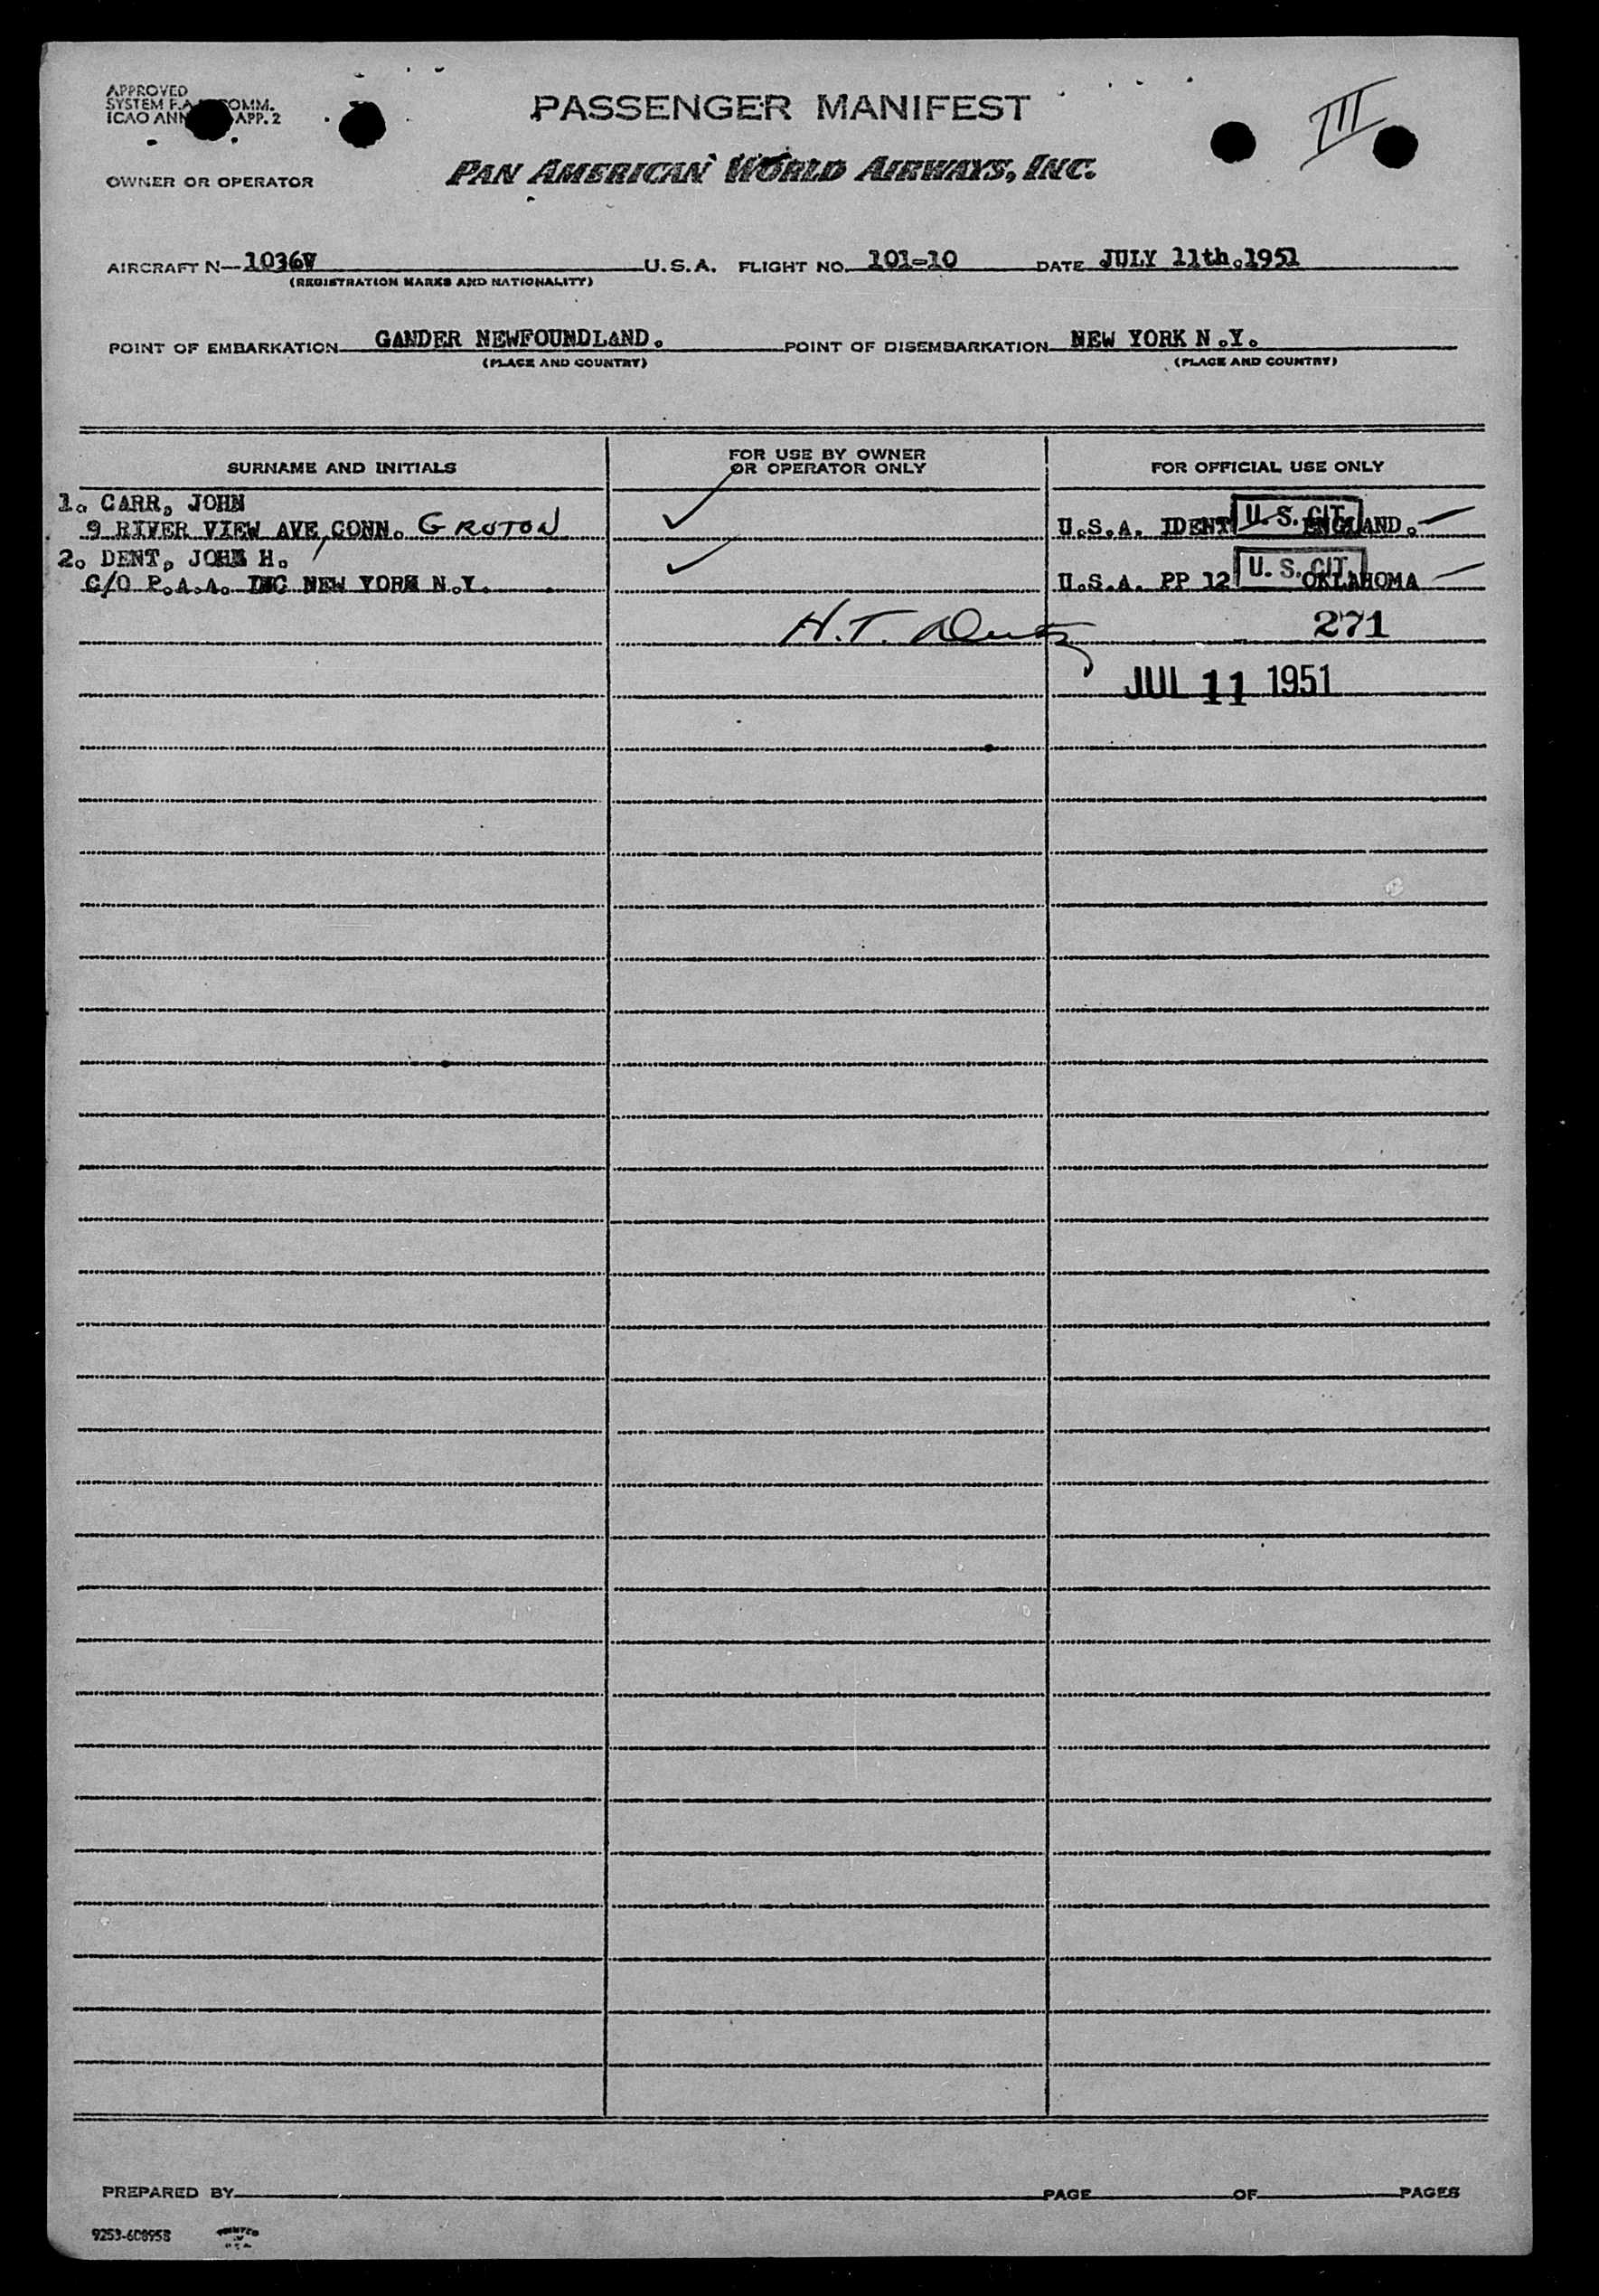 APPROVED
SYSTEM F.A. COMM.
ICAO ANN APP. 2
PASSENGER MANIFEST
III
OWNER OR OPERATOR PAN AMERICAN WORLD AIRWAYS, INC.
AIRCRAFT N-1036V U.S.A. FLIGHT NO. 101-10 DATE JULY 11th.1951
(REGISTRATION MARKS AND NATIONALITY)
POINT OF EMBARKATION GANDER NEWFOUNDLAND. POINT OF DISEMBARKATION NEW YORK N.Y.
(PLACE AND COUNTRY) (PLACE AND COUNTRY)
SURNAME AND INITIALS FOR USE BY OWNER OR OPERATOR ONLY FOR OFFICIAL USE ONLY
1. CARR, JOHN
9 RIVER VIEW AVE, CONN. GROTON U.S.A. IDENT U. S. CIT. ENGLAND.
2. DENT, JOHN H.
C/O P.A.A. INC NEW YORK N.Y. U.S.A. PP 12 U. S. CIT. OKLAHOMA
H.T. 271
JUL 11 1951
PREPARED BY PAGE OF PAGES
9253-608958 PRINTED IN U.S.A.